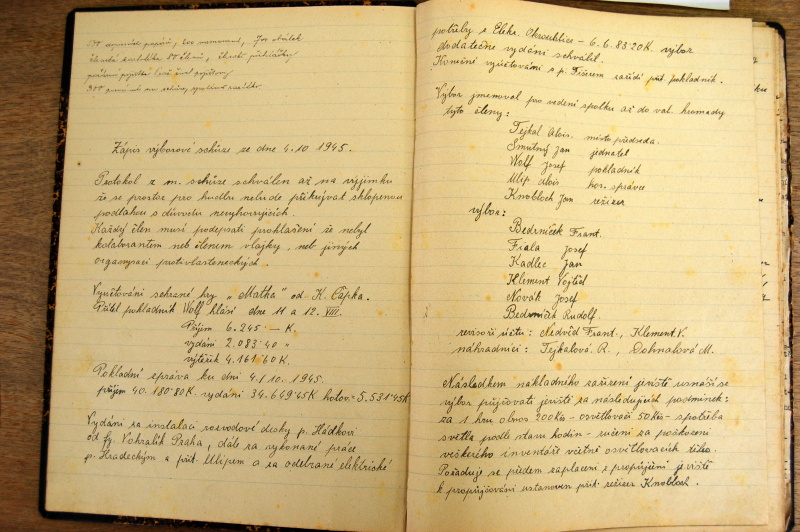 Zápis výborové schůze ze dne 4.10 1945.
Protokol z m. schůze schválen až na výjimku
že se prostor pro hudbu nebude přikrývat sklopenou
podlahou z důvodu nevyhovujících.
Každý člen musí podepsati prohlášení že nebyl
kolaborantem neb členem vlajky, neb jiných
organisací protivlasteneckých.
Vyúčtování sehrané hry "Matka" od K. Čapka.
Přítel pokladník Wolf hlásí dne 11 a 12. VIII.
Příjem 6.245 — K.
vydání 2.083·40 "
výtěžek 4.161·60 K.
Pokladní zpráva ku dni 4.10. 1945.
příjem 40.180·80K. vydání 34.649·45K hotov. = 5.531·45K
Vydání za instalaci rozvodové desky p. Hádkovi
od fy. Vokralík Praha, dále za vykonané práce
p. Hradeckým a přít. Ulipem a za odebrané elektrické
potřeby z Elekt. Okrouhlice – 6.6.83 20K výbor
dodatečně vydání schválil.
Konečné vyúčtování s p. Fišerem zařídí přít. pokladník.
Výbor jmenoval pro vedení spolku až do val. hromady
tyto členy:
Tejkal Alois. místopředseda.
Smutný Jan jednatel
Wolf Josef pokladník
Ulip Alois hos. správce
Knobloch Jan režisér
výbor:
Bedrníček Frant.
Fiala Josef
Kadlec Jan
Klement Vojtěch
Novák Josef
Bedrníček Rudolf.
revisoři účtu: Nedvěd Frant., Klement V.
náhradníci: Tejkalová R., Dohnalová M.
Následkem nákladného zařízení jeviště usnáší se
výbor půjčovati jeviště za následujících podmínek:
za 1 hru obnos 200 Kčs – osvětlovači 50 Kčs – spotřeba
světla podle stavu hodin – ručení za poškození
veškerého inventáře včetně osvětlovacích těles.
Požaduje se předem zaplacení z propůjčení jeviště
k propůjčování ustanoven přít. režisér Knobloch.